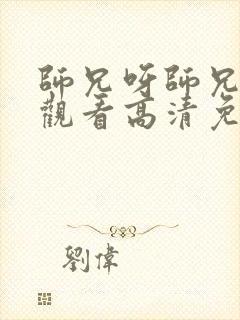 師兄呀師兄
觀看高清免
劉偉